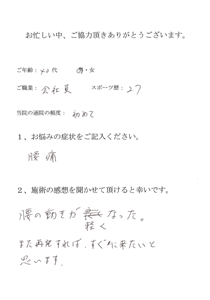 お忙しい中、ご協力頂きありがとうございます。
ご年齢：40代　男・女
ご職業：会社員　スポーツ歴：27
当院の通院の頻度：初めて
1、お悩みの症状をご記入ください。
腰痛
2、施術の感想を聞かせて頂けると幸いです。
腰の動きが軽くなった。
また再発すれば、すぐに来たいと
思います。